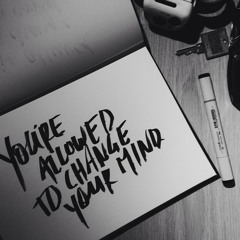 YOU'RE
ALLOWED
TO CHANGE
YOUR MIND